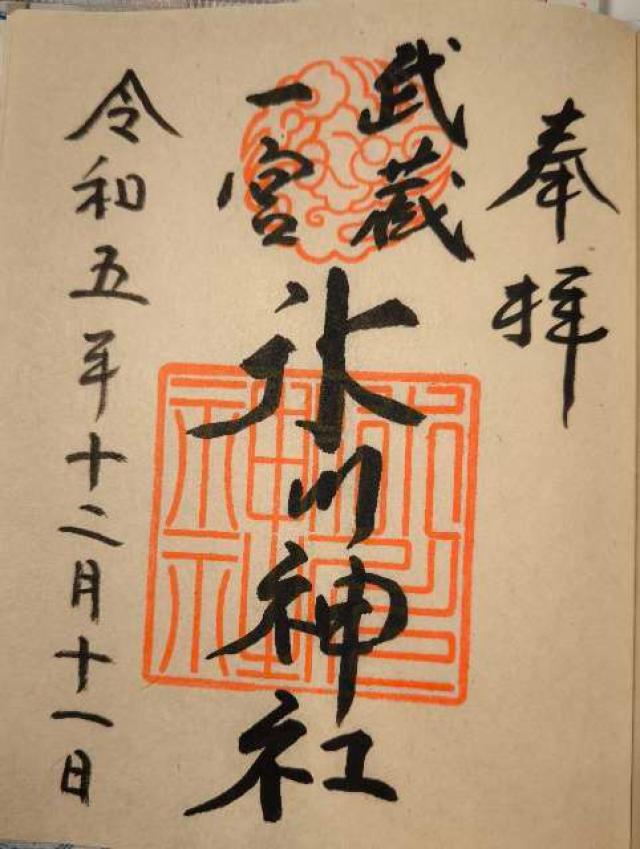 奉拝
武蔵
一宮
氷川神社
令和五年十二月十一日